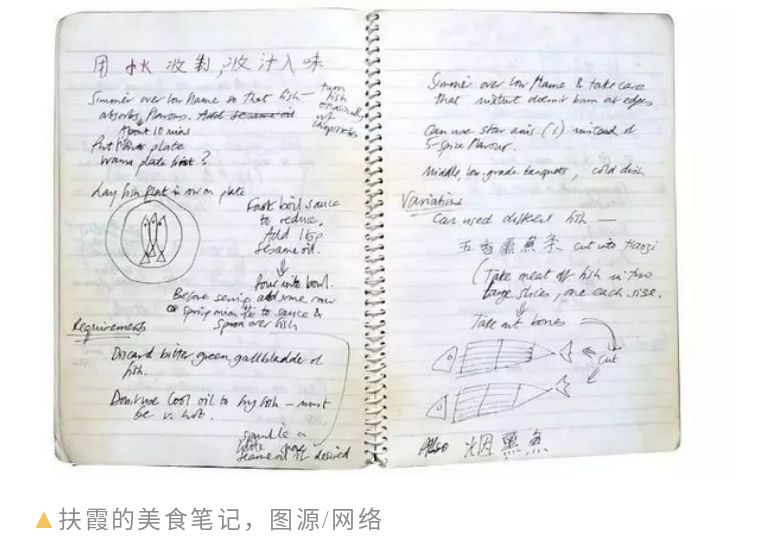 用小火收割,收汁入味
Simmer over low flame so that fish
absorbs flavours. Add sesame oil
turn
fish
occasionally
w/
chopsticks
About 10 mins
Put on plate
warm plate first?
Lay fish flat in row on plate
Fast boil sauce
to reduce.
Add 1 tsp
sesame oil.
Pour into bowl.
Before serving add some raw
spring onion to sauce &
spoon over fish
Requirements
Discard bitter green gallbladder of
fish.
Don't use cool oil to fry fish – must
be v. hot.
sprinkle a
little
sesame oil if desired
Simmer over low flame & take care
that mixture doesn't burn at edges.
Can use star anis (1) instead of
5-spice flavour.
Middle, low-grade banquets, cold dish
Variations
Can used different fish —
五香熏鱼条 cut into tiaozi
(Take meat off fish in two
large slices, one each side.
Take out bones
cut
Also 烟熏鱼
扶霞的美食笔记，图源/网络